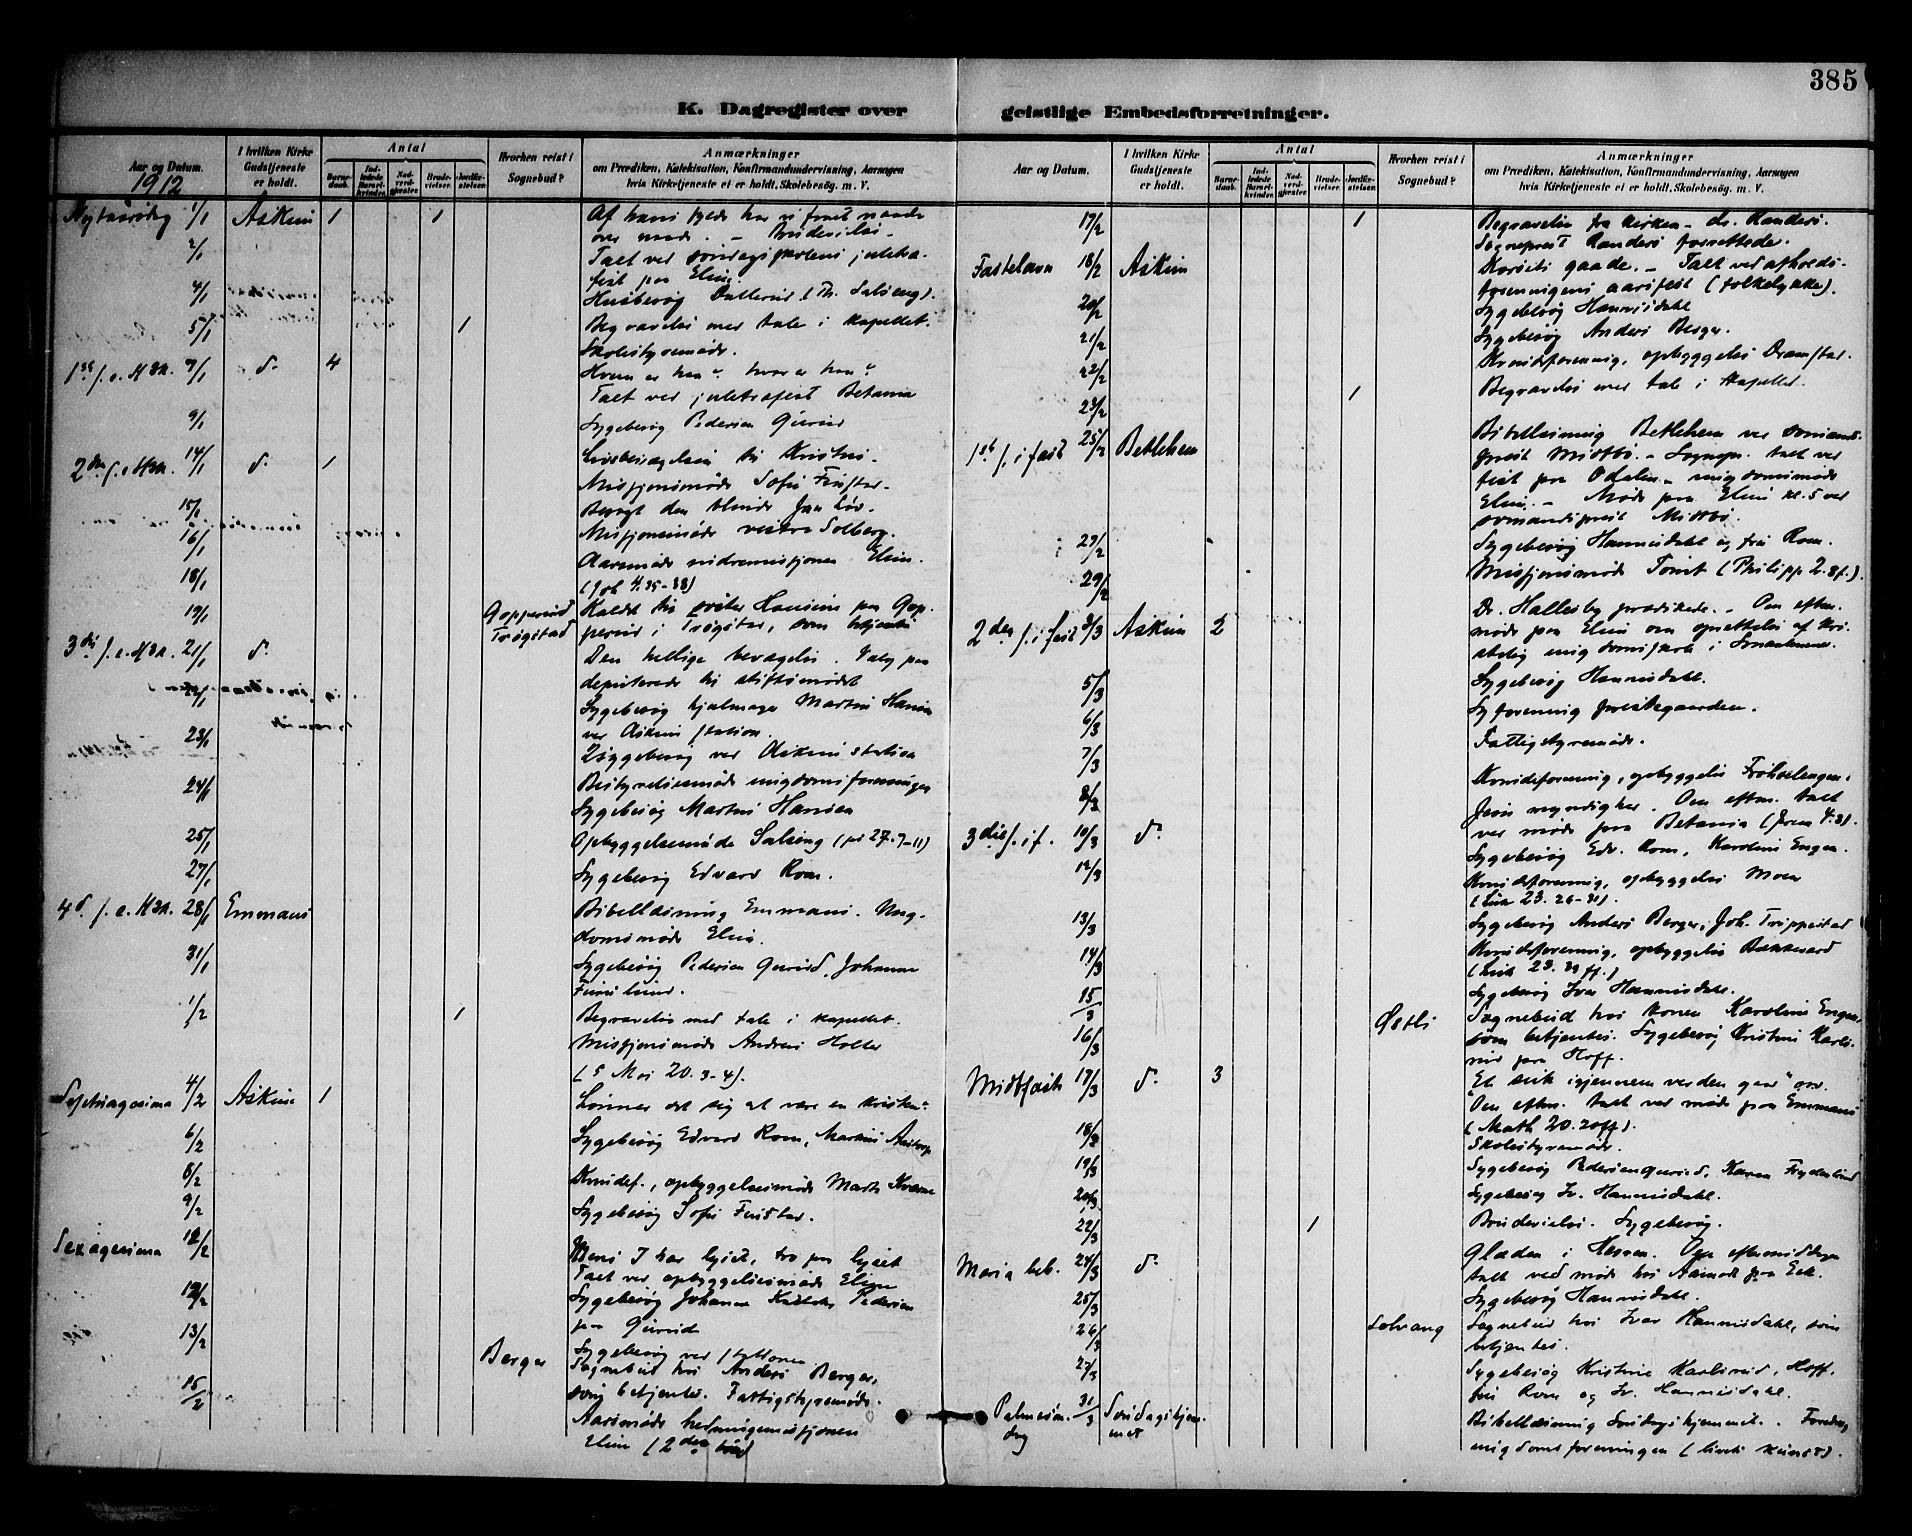 385
K. Dagregister over geistlige Embedsforretninger.
Aar og Datum.
I hvilken Kirke Gudstjeneste er holdt.
Antal
Barne-daab.
Ind-ledede Barsel-kvinder.
Nad-verd-gjæster.
Brude-vielser.
Jordfæ-stelser.
Hvorhen reist i Sognebud?
Anmærkninger
om Prædiken, Katekisation, Konfirmandundervisning, Aarsagen
hvis Kirketjeneste ei er holdt, Skolebesög. m. V.
1912
Nytaarsdag 1/1 Askim 1 1 Af hans fylde har vi faaet naade
over naade. – Brudevielse.
2/1 Talt ved søndagsskolens juletræ-
fest paa Elim.
4/1 Husbesøg
5/1 1 Begravelse med tale i kapellet.
Skolestyremøde.
1ste s. e. H3K. 7/1 d. 4 Hvem er han? hvor er han?
Talt ved juletræfest Betania
9/1 Sygebesøg Pedersen
2den s. e. H3K. 14/1 d. 1
Missjonsmøde Sofie
15/1 Besøgt den blinde Jan
16/1 Missjonsmøde vestre Solberg.
18/1 Aarsmøde indremissjonen Elim.
(Joh 4.35-38)
19/1 Gopperud Trøgstad Kaldt til søster Hansine paa Gop-
perud i Trøgstad, som betjentes
3die s. e. H3K. 21/1 d. Den hellige bevægelse. Valg paa
deputerede til stiftsmødet
Sygebesøg hjulmager Martin Hansen
ved Askim station.
23/1 2 sygebesøg ved Askim station
24/1 Bestyrelsesmøde ungdomsforeningen
Sygebesøg Martin Hansen
25/1 Opbyggelsesmøde Salseng (ps 27.7-11)
27/1 Sygebesøg Edvard Rom.
4de s. e. H3K. 28/1 Emmaus Bibellæsning Emmaus. Ung-
domsmøde Elim.
31/1 Sygebesøg Pedersen Johanne
1/2 1 Begravelse med tale i kapellet.
Missjonsmøde Andreas Holter
(5 Mos 20.3-4).
Septuagesima 4/2 Askim 1 Lønner det sig at være en kristen?
6/2 Sygebesøg Edvard Rom, Martin
8/2 Kvindef., opbyggelsesmøde
9/2 Sygebesøg Sofie
Sexagesima Mens I har lyset, tro paa lyset
Talt ved opbyggelsesmøde Elim
Sygebesøg Johanne Pedersen
13/2 Sygebesøg ved stationen
Berger Sognebud hos Anders Berger,
som betjentes. Fattigstyremøde.
15/2 Aarsmøde hedningemissjonen
Elim (2den
17/2 1 Begravelse fra kirken – dr. Randers.
Sogneprest Randers forrettede.
Fastelavn 18/2 Askim Korsets gaade. – Talt ved afholds-
foreningens aarsfest (folkelykke).
20/2 Sygebesøg Hannisdahl
21/2 Sygebesøg Anders Berger.
22/2 Kvindeforening, opbyggelse Dramstad.
23/2 1 Begravelse med tale i kapellet.
1ste s. i faste 25/2 Bethlehem Bibellæsning Bethlehem ved sømands-
prest Midtbø. – Sognepr. talt ved
fest paa – ungdomsmøde
Elim. – Møde paa Elim kl. 5 ved
sømandsprest Midtbø.
27/2 Sygebesøg Hannisdahl og fru Rom.
29/2 Missjonsmøde Tomt (Philipp 2.8f.).
2den s. i faste 3/3 Askim 2 Dr. Hallesby prædikede. – Om efterm.
møde paa Elim om oprettelse af kri-
stelig ungdomsskole i Smaalenene.
5/3 Sygebesøg Hannisdahl.
6/3 Syforening prestegaarden.
7/3 Fattigstyremøde.
8/3 Kvindeforening, opbyggelse Frøshaugen.
3die s. i f. 10/3 d. Jesu myndighed. Om efterm. talt
ved møde paa Betania
12/3 Sygebesøg Edv. Rom, Karoline Engen.
Kvindeforening, opbyggelse Moen
(Luk 23. 26-31).
13/3 Sygebesøg Anders Berger, Joh. Trippestad
14/3 Kvindeforening, opbyggelse
(Luk 23. 39 ff.)
15/3 Sygebesøg Ivar Hannisdahl.
16/3 Østli Sognebud hos konen Karoline Engen,
som betjentes. Sygebesøg Kristine Karls-
rud paa Hoff.
Midtfaste 17/3 d. 3 Et suk igjennem verden gaar osv.
Om efterm. talt ved møde paa Emmaus
(Math 20.20ff).
18/3 Skolestyremøde.
19/3 Sygebesøg Pedersen Karen Frydenlund
20/3 Sygebesøg Iv. Hannisdahl.
22/3 1 Brudevielse. Sygebesøg.
Maria beb. 24/3 d. Glæden i Herren. Om eftermiddagen
talt ved møde hos Aamodt paa Eek.
25/3 Sygebesøg Hannisdahl.
26/3 Solvang Sognebud hos Ivar Hannisdahl, som
betjentes.
27/3 Sygebesøg Kristine Karlsrud, Hoff.
fru Rom og Iv. Hannisdahl.
Palmesøndag 31/3 Søndagshjemmet Bibellæsning Søndagshjemmet. Foredrag
ungdomsforeningen (livets kunst).